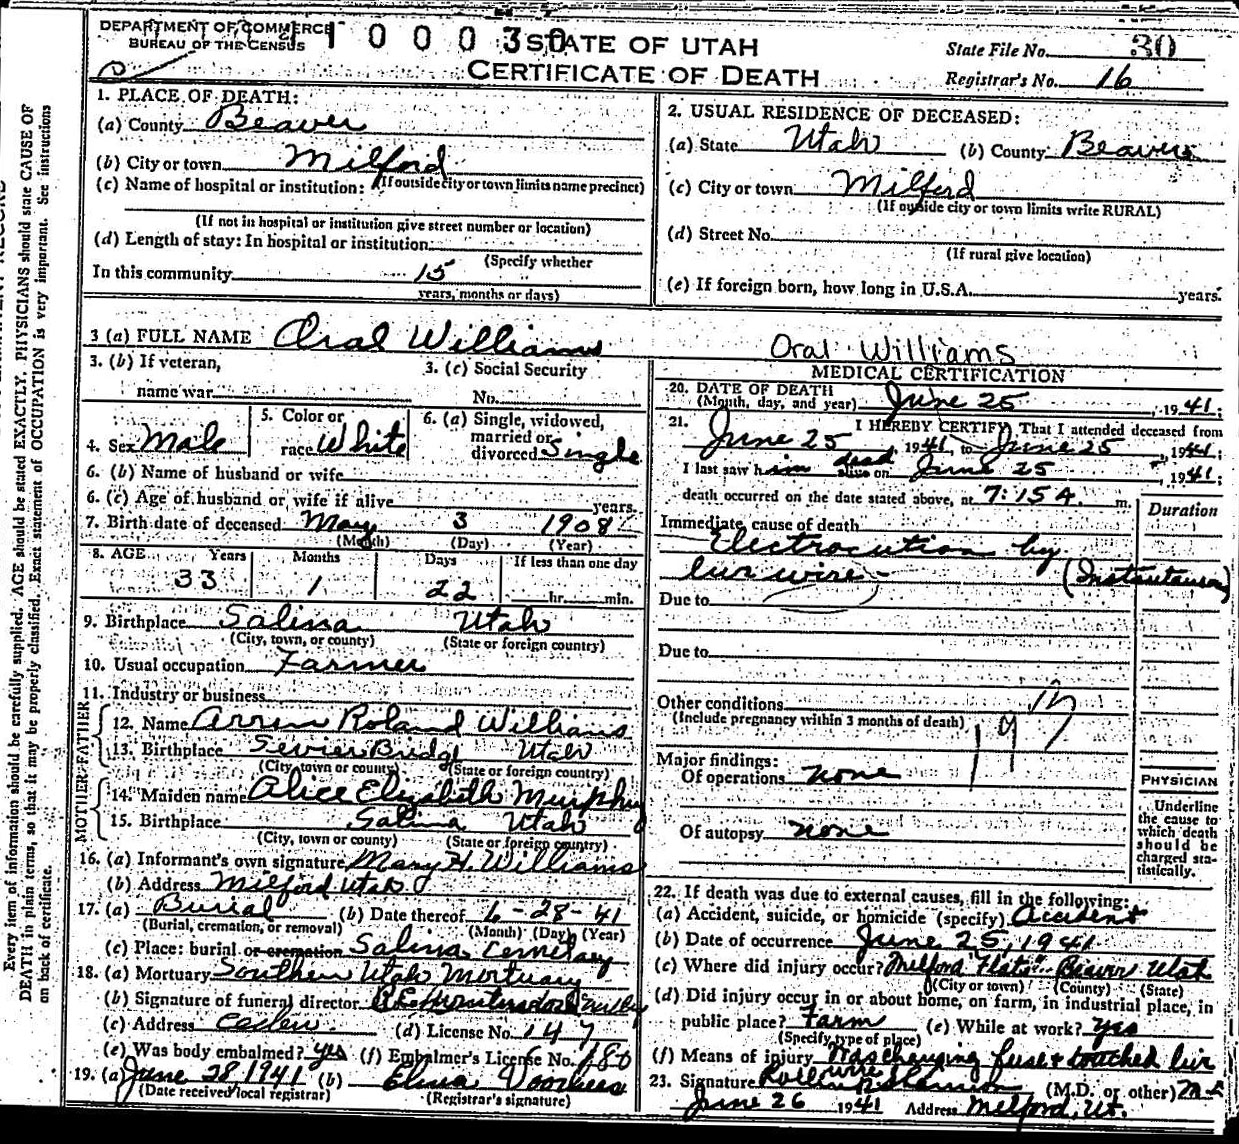 DEPARTMENT OF COMMERCE
BUREAU OF THE CENSUS
1 0 0 0 3 0
STATE OF UTAH
CERTIFICATE OF DEATH
State File No. 30
Registrar's No. 16
Every item of information should be carefully supplied. AGE should be stated EXACTLY. PHYSICIANS should state CAUSE OF
DEATH in plain terms, so that it may be properly classified. Exact statement of OCCUPATION is very important. See instructions
on back of certificate.
1. PLACE OF DEATH:
(a) County Beaver
(b) City or town Milford
(If outside city or town limits name precinct)
(c) Name of hospital or institution:
(If not in hospital or institution give street number or location)
(d) Length of stay: In hospital or institution
(Specify whether
In this community 15
years, months or days)
2. USUAL RESIDENCE OF DECEASED:
(a) State Utah (b) County Beaver
(c) City or town Milford
(If outside city or town limits write RURAL)
(d) Street No.
(If rural give location)
(e) If foreign born, how long in U.S.A. years.
3 (a) FULL NAME Oral Williams
Oral Williams
3. (b) If veteran,
name war
3. (c) Social Security
No.
4. Sex Male
5. Color or
race White
6. (a) Single, widowed,
married or
divorced Single
6. (b) Name of husband or wife
6. (c) Age of husband or wife if alive years.
7. Birth date of deceased May 3 1908
(Month) (Day) (Year)
8. AGE Years Months Days If less than one day
33 1 22 hr. min.
9. Birthplace Salina Utah
(City, town, or county) (State or foreign country)
10. Usual occupation Farmer
11. Industry or business
FATHER
12. Name Arren Roland Williams
13. Birthplace Sevier Bridge Utah
(City, town or county) (State or foreign country)
MOTHER
14. Maiden name Alice Elizabeth Murphy
15. Birthplace Salina Utah
(City, town or county) (State or foreign country)
16. (a) Informant's own signature Mary H. Williams
(b) Address Milford Utah
17. (a) Burial (b) Date thereof 6-28-41
(Burial, cremation, or removal) (Month) (Day) (Year)
(c) Place: burial or cremation Salina Cemetary
18. (a) Mortuary Southern Utah Mortuary
(b) Signature of funeral director
(c) Address Cedar (d) License No. 147
(e) Was body embalmed? yes (f) Embalmer's License No. 180
19. (a) June 28 1941 (b) Elma Voorhees
(Date received local registrar) (Registrar's signature)
MEDICAL CERTIFICATION
20. DATE OF DEATH
(Month, day, and year) June 25, 1941;
21. I HEREBY CERTIFY, That I attended deceased from
June 25 1941, to June 25, 1941;
I last saw him dead alive on June 25, 1941;
death occurred on the date stated above, at 7:15 A. m.
Duration
Immediate cause of death
Electrocution by
live wire - (Instantaneous)
Due to
Due to
Other conditions
(Include pregnancy within 3 months of death)
Major findings:
Of operations none
Of autopsy none
PHYSICIAN
Underline
the cause to
which death
should be
charged sta-
tistically.
22. If death was due to external causes, fill in the following:
(a) Accident, suicide, or homicide (specify) Accident
(b) Date of occurrence June 25, 1941
(c) Where did injury occur? Milford "Flats" Beaver Utah
(City or town) (County) (State)
(d) Did injury occur in or about home, on farm, in industrial place, in
public place? Farm (e) While at work? yes
(Specify type of place)
(f) Means of injury Was changing fuse & touched live
wire
23. Signature (M.D. or other)
June 26 1941 Address Milford, Ut.